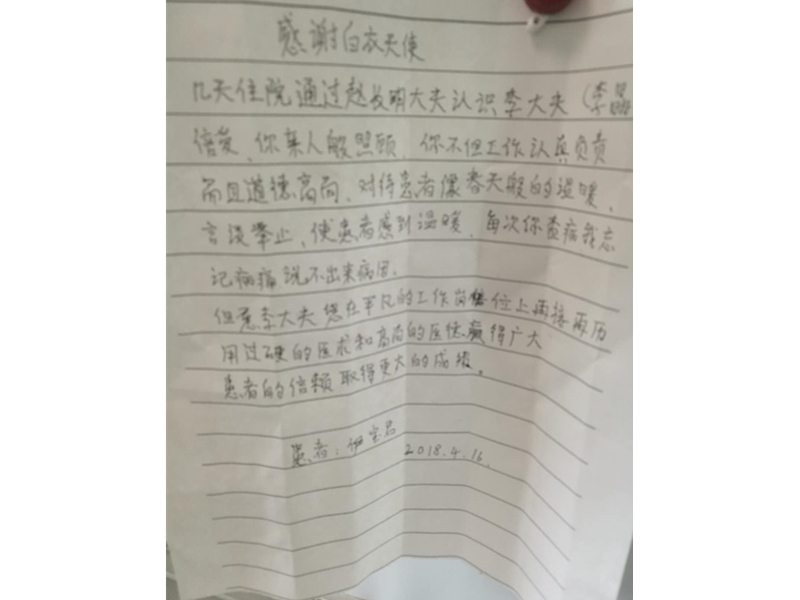 感谢白衣天使
几天住院通过赵长明大夫认识李大夫（李晶
倍爱、你亲人般照顾，你不但工作认真负责
而且道德高尚，对待患者像春天般的温暖，
言谈举止，使患者感到温暖，每次你查病我忘
记病痛说不出来病因。
但愿李大夫您在平凡的工作岗位上再接再历
用过硬的医术和高尚的医德赢得广大
患者的信赖取得更大的成绩。
患者：宝君
2018.4.16.